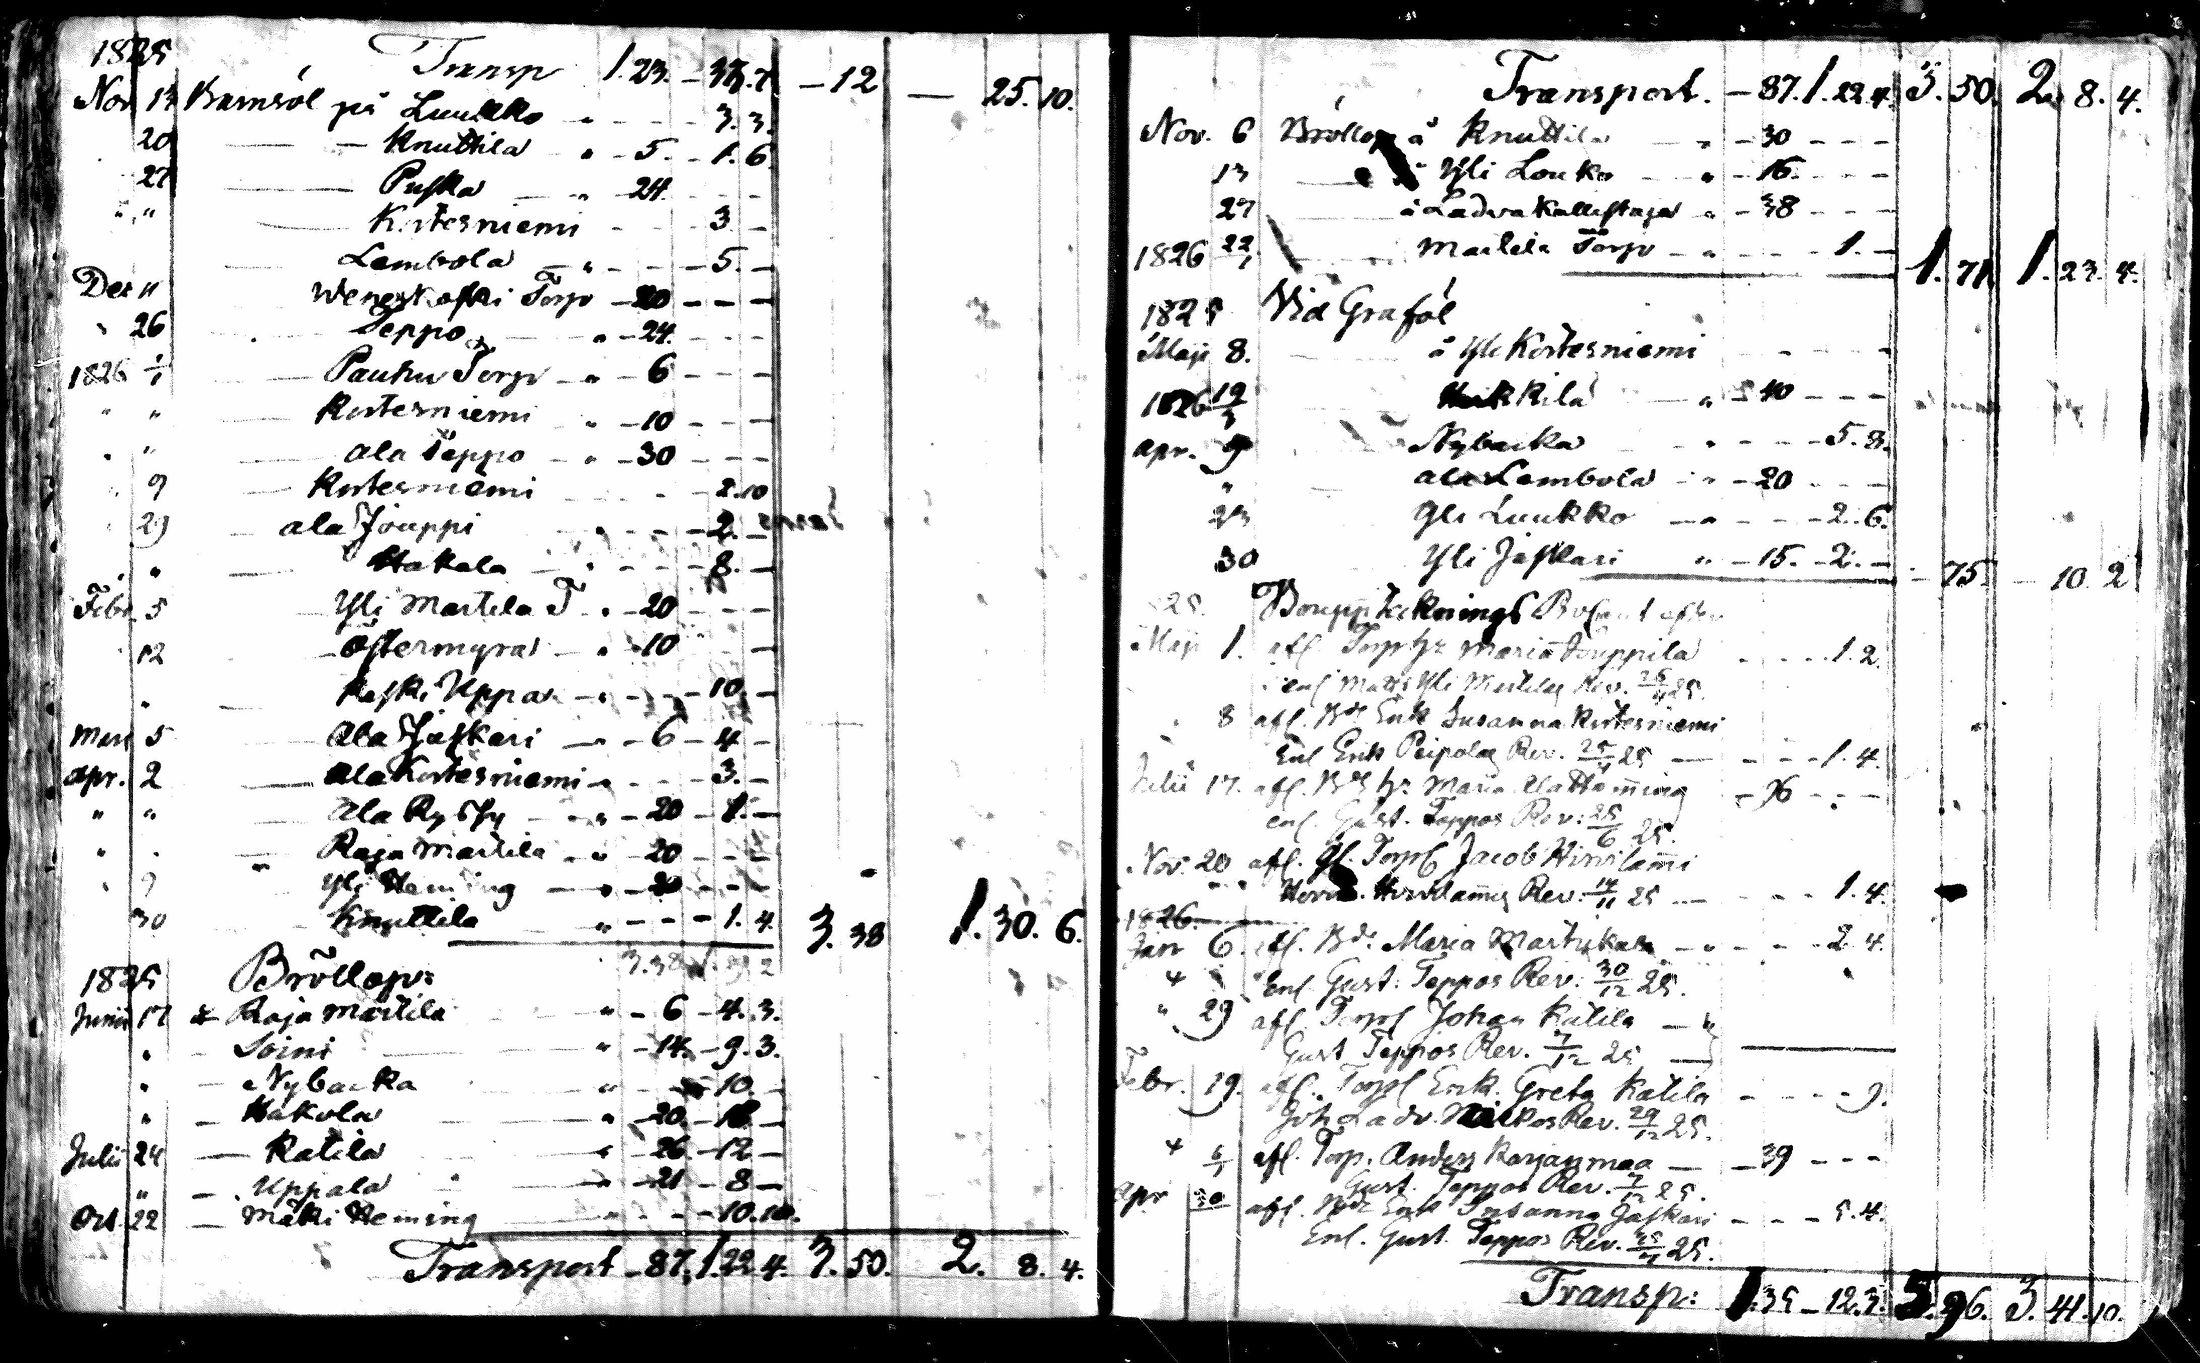 1825 Transp 1.23. - 37.7. - 12 — 25.10.
Nov. 13 Barnsöl på Luukko " - - - - 3.3.
20 — — Knuttila " - 5. - 1.6.
27 — Puska — " - 24. - - -
" " — Kortesniemi - - - 3 -
— Lembola — " - - - 5. -
Dec 11 Weneskoski Torp - 20 - - -
" 26 Seppo — " - 24. - - -
1826 1/1 — Pauhu Torp - " - 6 - - -
" " — Kortesniemi " - 10 - - -
" " — Ala Seppo - " - 30 - - -
" 9 — Kortesniemi - - - 2.10
" 29 — ala Jouppi " - - - 2. -
" " — Hakala — " - - - 8. -
Febr. 5 — Yli Martila T. " - 20 - - -
12 — Östermyra — " - 10 - - -
" — Keski Uppa — " - - - 10. -
Mars 5 — Ala Jaskari — " - 6 - 4 -
Apr. 2 — Ala Kortesniemi " - - - 3. -
" " — Ala Rysty - " - 20 - 1. -
" " — Raja Martila " - 20 - - -
" 9 Yli Heming — " - 20 - - -
30 Knuttila — " - - - 1.4. 3.38 1.30.6.
1825 Bröllop:
Junii 17 å Raja Martila — " - 6 - 4.3.
" — Soini — " - 14. - 9.3.
" — Nybacka " - 10. -
" — Hakola — " - 20. - 18 -
Julii 24 — Katila — " - 26 - 12 -
" — Uppala " - 21 - 8 -
Oct. 22 — Mäki Heming " - - - 10.10.
Transport - 87. 1.22.4. 3.50. 2. 8. 4.
Transport. - 87. 1.22.4. 3.50. 2. 8. 4.
Nov. 6 Bröllop å Knuttila — " - 30 - - -
13 — Yli Louko — " - 16. - - -
27 å Ladvakallistaja " - 38 - - -
1826 22/1 Martila Torp - " - - - 1. - 1.71. 1.23.4.
1825 Vid Graföl
Maji 8. å Yli Kortesniemi - - - -
1826 19/3 Heikkilä — " - 40 - - -
Apr. 9 Nybacka " - - - 5.8.
" ala Lembola - " - 20 - - -
23 Yli Luukko — " - - - 2.6.
30 Yli Jaskari " - 15. - 2. - - 75. - 10 2
25. Bouppteknings
Maji 1. afl. Maria Jouppila - - - 1.2.
Matts Yli Martilas Rev. 25.
" 8 afl. Enk Susanna Kortesniemi
Enl Erik Peipolas Rev. 25 — - - - 1.4.
Julii 17. afl. Maria - 96 - - -
enl. Gust. Seppos Rev: 25/6 25.
Nov. 20 afl. gl. Jacob Hirvilammi
Hirvilammis Rev. 11 25 — - - - 1.4.
1826
Jan 6. afl. Maria — " - - - 2.4.
Enl. Gust. Seppos Rev: 30/12 25.
" 29 afl. Johan Katila — "
Gust Seppos Rev. 7/12 25 —
Febr. 19. afl. Enk. Greta Katila - - - - 9.
Joh. Rev. 29/12 25.
afl. Torp. Anders Karjanmaa — - 39 - - -
Gust. Seppos Rev. 25.
Apr 30 afl. Enk Susanna Jaskari - - - 5.4.
Enl. Gust. Seppos Rev. 25.
Transp: 1.35 - 12.3. 5.96. 3.41.10.